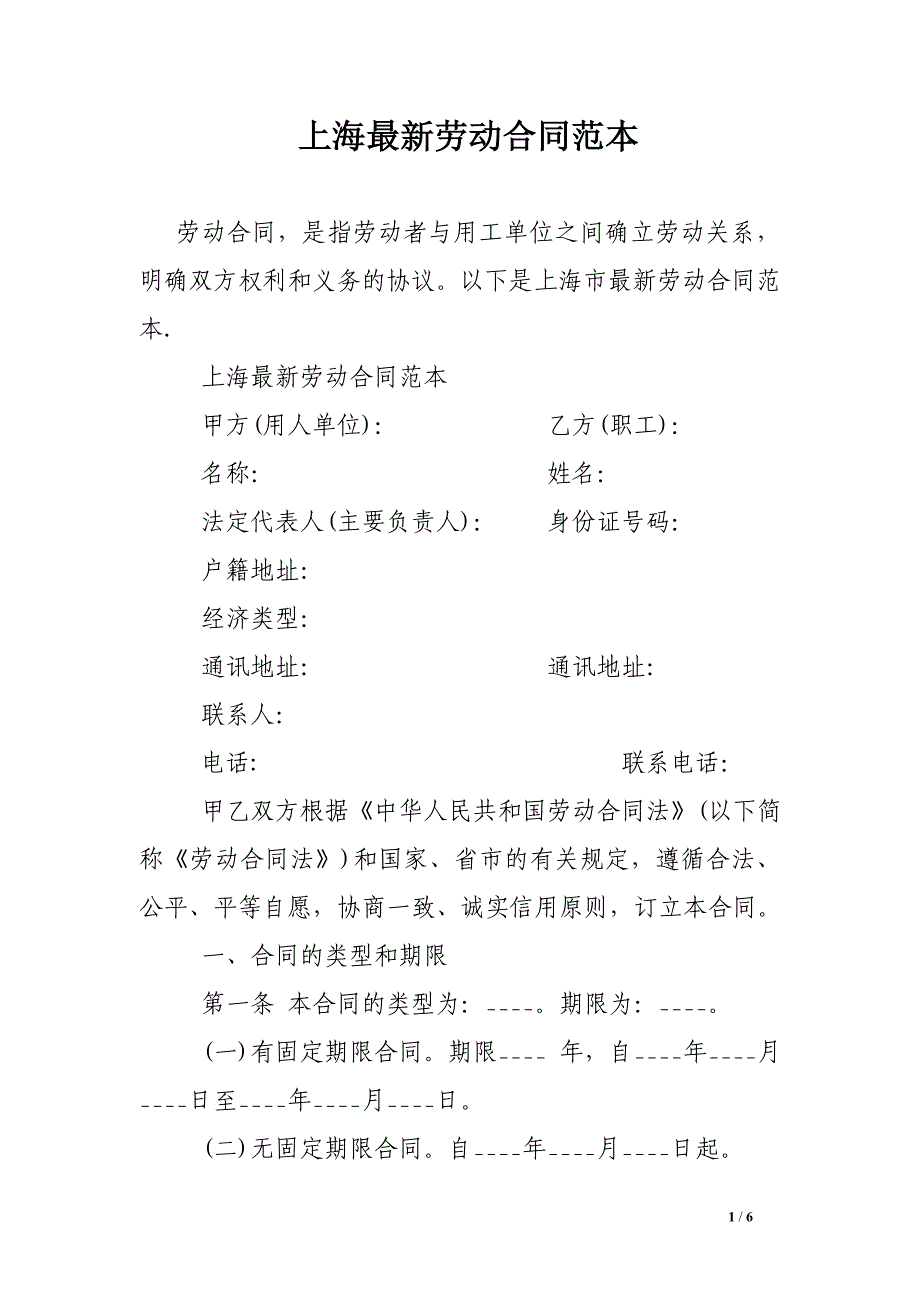 上海最新劳动合同范本
劳动合同，是指劳动者与用工单位之间确立劳动关系，
明确双方权利和义务的协议。以下是上海市最新劳动合同范
本.
上海最新劳动合同范本
甲方(用人单位)： 乙方(职工)：
名称： 姓名：
法定代表人(主要负责人)： 身份证号码：
户籍地址：
经济类型：
通讯地址： 通讯地址：
联系人：
电话: 联系电话：
甲乙双方根据《中华人民共和国劳动合同法》(以下简
称《劳动合同法》)和国家、省市的有关规定，遵循合法、
公平、平等自愿，协商一致、诚实信用原则，订立本合同。
一、合同的类型和期限
第一条 本合同的类型为：____。期限为：____。
(一)有固定期限合同。期限____ 年，自____年____月
____日至____年____月____日。
(二)无固定期限合同。自____年____月____日起。
1 / 6